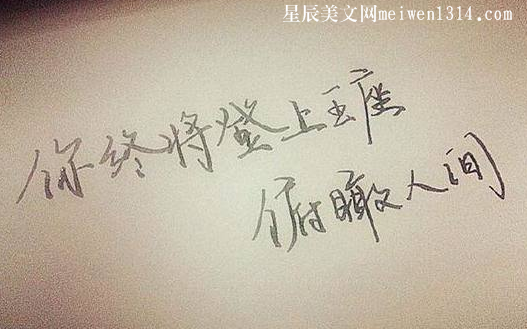 星辰美文网meiwen1314.com
你终将登上王座
俯瞰人间